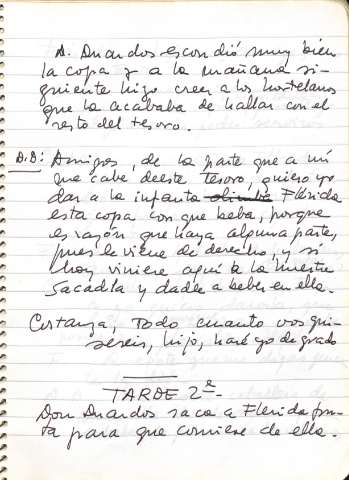 D. Duardos escondió muy bien
la copa y a la mañana si-
guiente hizo creer a los hortelanos
que la acababa de hallar con el
resto del tesoro.
D.D: Amigos, de la parte que a mí
me cabe deeste tesoro, quiero yo
dar a la infanta olimba Flérida
esta copa con que beba, porque
es razón que haya alguna parte,
pues le viene de derecho, y si
hoy viniere aquí la huerta
Sacadla y dadle a beber en ella.
Costanza, Todo cuanto vos qui-
siereis, hijo, haré yo de grado
TARDE 2ª-
Don Duardos saca a Flérida fru-
ta para que comiese de ella.